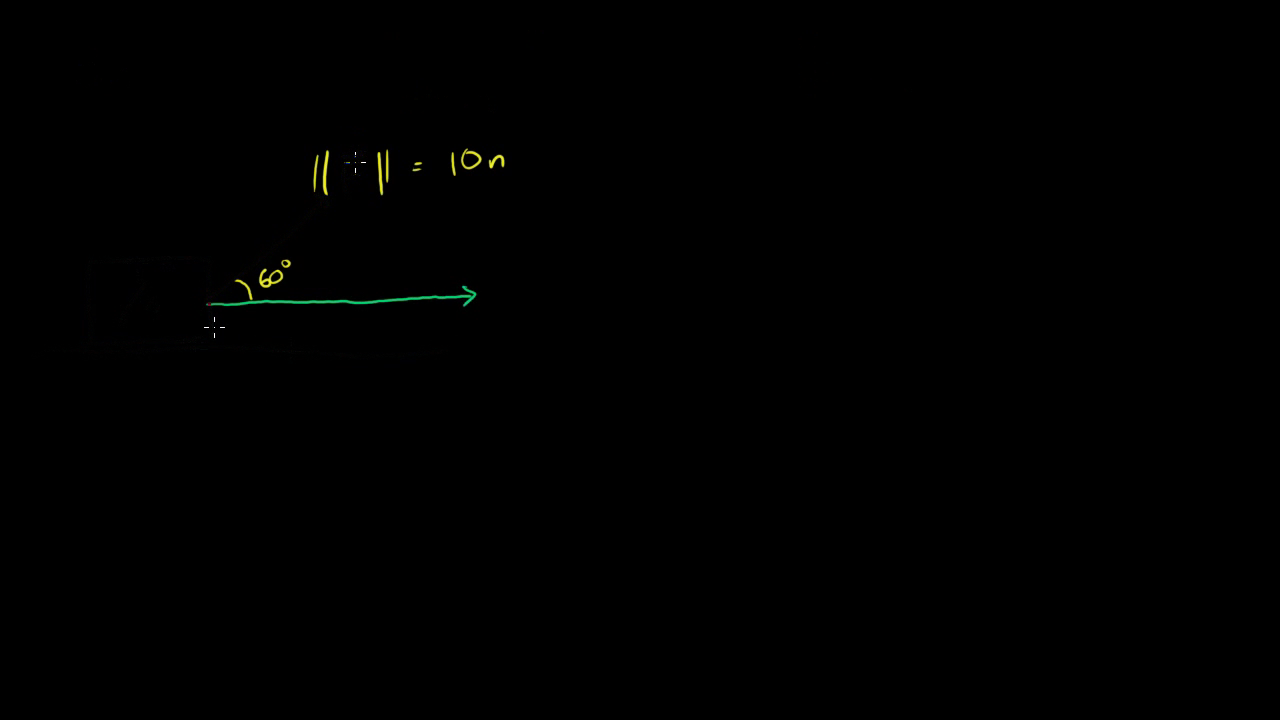 || || = 10n
60°